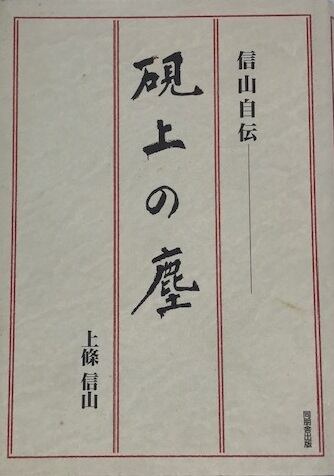 信山自伝――
硯上の塵
上條信山
同朋舎出版